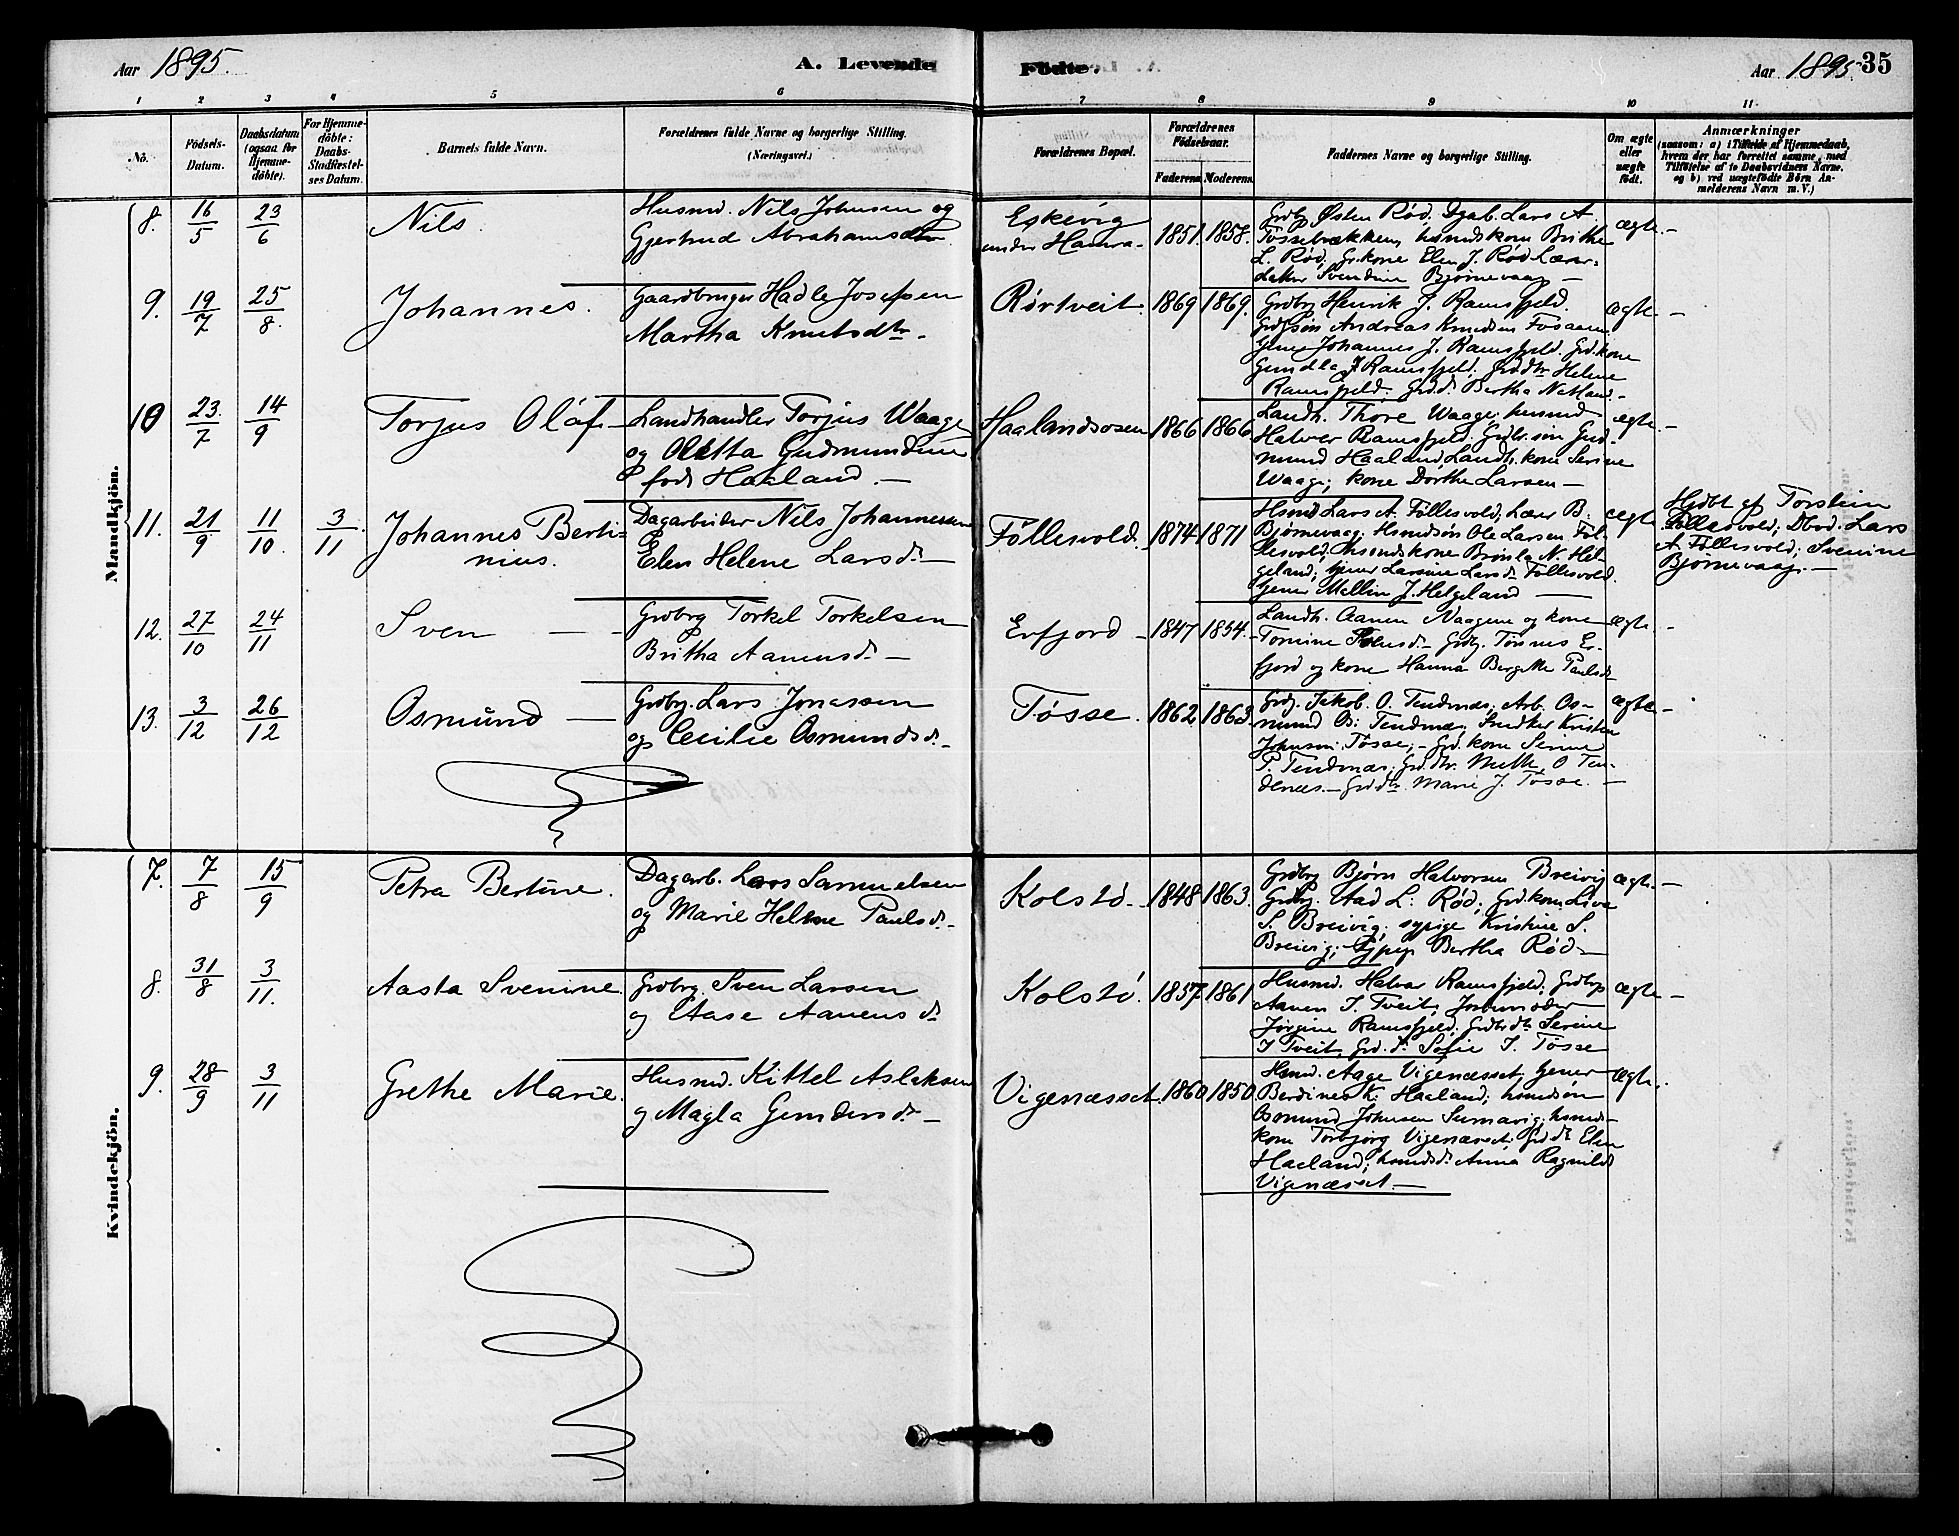 Aar 1895.
A. Levende
Födte.
Aar 1895.
35
1 2 3 4 5 6 7 8 9 10 11
No.
Födsels-Datum.
Daabsdatum (ogsaa for Hjemme-döbte).
For Hjemme-döbte: Daabs-Stadfæstel-ses Datum.
Barnets fulde Navn.
Forældrenes fulde Navne og borgerlige Stilling.
(Næringsvei.)
Forældrenes Bopæl.
Forældrenes Födselsaar.
Faderens. Moderens.
Faddernes Navne og borgerlige Stilling.
Om ægte eller uægte födt.
Anmærkninger
(saasom: a) i Tilfælde af Hjemmedaab,
hvem der har forrettet samme, med
Tilföielse af to Daabsvidners Navne.
og b) ved uægtefödte Börn An-
melderens Navn m. V.)
Mandkjön.
8. 16/5 23/6 Nils.
Husmd. Nils Johnsen og
Gjertrud Abrahamsdtr
Eskevig
under Hamra-
1851. 1858.
Grdbr Østen Rød. Dgab. Lars A.
Tøssebrækken, husmdskone Brithe
L. Rød. Gr.kone Elen J. Rød. Lærer-
datter Svendine Bjørnevaag -
ægte. -
9. 19/7 25/8. Johannes.
Gaardbruger Hadle Josefsen
Martha Knutsdtr.
Rørtveit. 1869 1869.
Grdbr Henrik J. Ramsfjeld.
Grdbrsøn Andreas Knudsen Fosaaen
Gjener Johannes J. Ramsfjeld. Grd.kone
Gundla J. Ramsfjeld; Grddtr Helene
Ramsfjeld. Grdd. Bertha Natland -
ægte. -
10 23./7 14/9 Torjus Olaf -
Landhandler Torjus Waage
og Oletta Gudmundine
født Haaland. -
Haalandsosen 1866 1866.
Landh. Thore Waage; husmd
Halvor Ramsfjeld. Grdbr.søn Gud-
mund Haaland Landh. kone Serine
Waage; kone Dorthe Larsen -
ægte. -
11. 21/9 11/10. 3/11. Johannes Berti-
nius.
Dagarbeider Nils Johannessen
Elen Helene Larsd. -
Føllesvold. 1874 1871
Hsmd Lars A. Føllesvold; Lærer B.
Bjørnevaag; Hsmdsøn Ole Larsen Føl-
lesvold; Husmdskone Brønla N. Hel-
geland; tjener Larsine Larsd. Føllesvold.
Gjener Mallin J. Helgeland -
ægte
Hjdbt af Torstein
Føllesvold; Dbvd. Lars
A. Føllesvold; Svenine
Bjørnevaag. -
12. 27/10 24/11 Sven - -
Grdbrg Torkel Torkelsen
Britha Aanensd. -
Erfjord - 1847 1854.
Landh. Aanen Vaagene og kone
Tomine - Grdbr. Tønnes Er-
fjord og kone Hanna Bergitte Paulsd
ægte. -
13. 3/12 26/12 Osmund -
Grdbrg. Lars Jonassen
og Cecilie Osmundsd. -
Tøsse. 1862. 1863.
Grdb. Jakob. O. Tendenæs, Arb. Os-
mund Os: Tendenæs, Snedker Kristen
Johnsen Tøsse; - Grd. kone Serine
P. Tendenæs; Grddtr. Mette O Ten-
denæs. - Grddtr. Marie J. Tøsse. -
ægte -
Kvindekjön.
7. 7/8 15/9 Petra Bertine.
Dagarb. Lars Samuelsen
og Marie Helene Paulsd. -
Kolstø - 1848 1863.
Grdbrg Bjørn Halvorsen Breivig
Grdbrg. Aad L. Rød; Grd.kone Live
S. Breivig; sypige Kristine S.
Breivig; Bertha Rød -
ægte. -
8. 31/8 3/11. Aasta Svenine.
Grdbrg. Sven Larsen
og Aase Aanensd.
Kolstø. 1857. 1861
Husmd. Halvor Ramsfjeld. Grdbrg
Aanen I. Tveit, Jordmoder
Jørgine Ramsfjeld. Grdbrdtr Serine
I Tveit. Grd.d. Sofie I. Tøsse
ægte -
9. 28/9 3/11 Grethe Marie.
Husmd. Kittel Aslaksen
og Magla Gundersd. -
Vigenæsset. 1860 1850
Hsmd. Aage Vigenæsset, tjener
Berdines K. Haaland; husmdsøn
Osmund Johnsen Sunarvig; husmds-
kone Torbjørg Vigenæsset. Grdd. Elen
Haaland; husmdsd. Anna Ragnild
Vigenæsset. -
ægte.